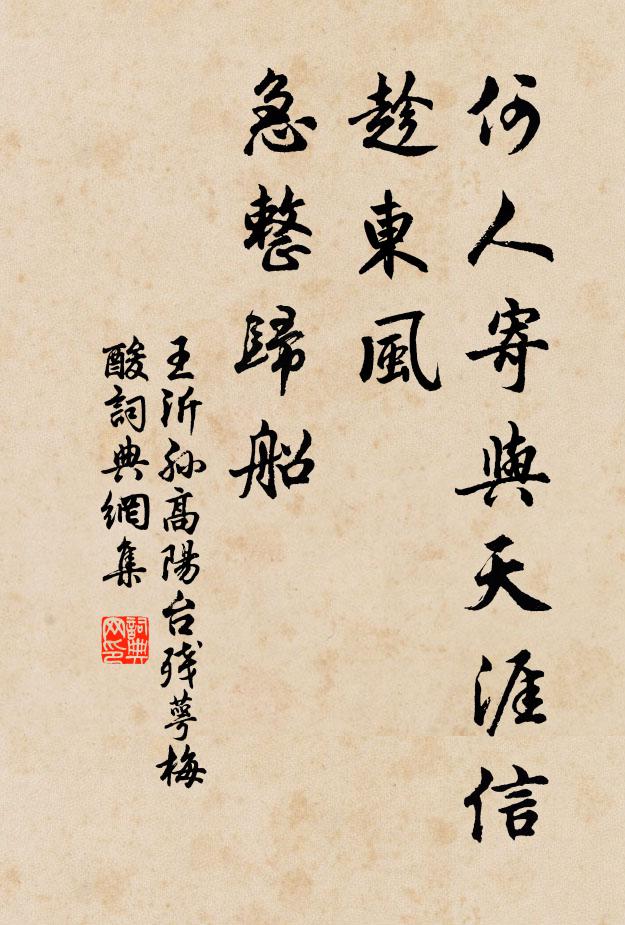 何人寄與天涯信
趁東風
急整歸船
王沂孙高陽台殘萼梅
酸詞典網集
詞典網印